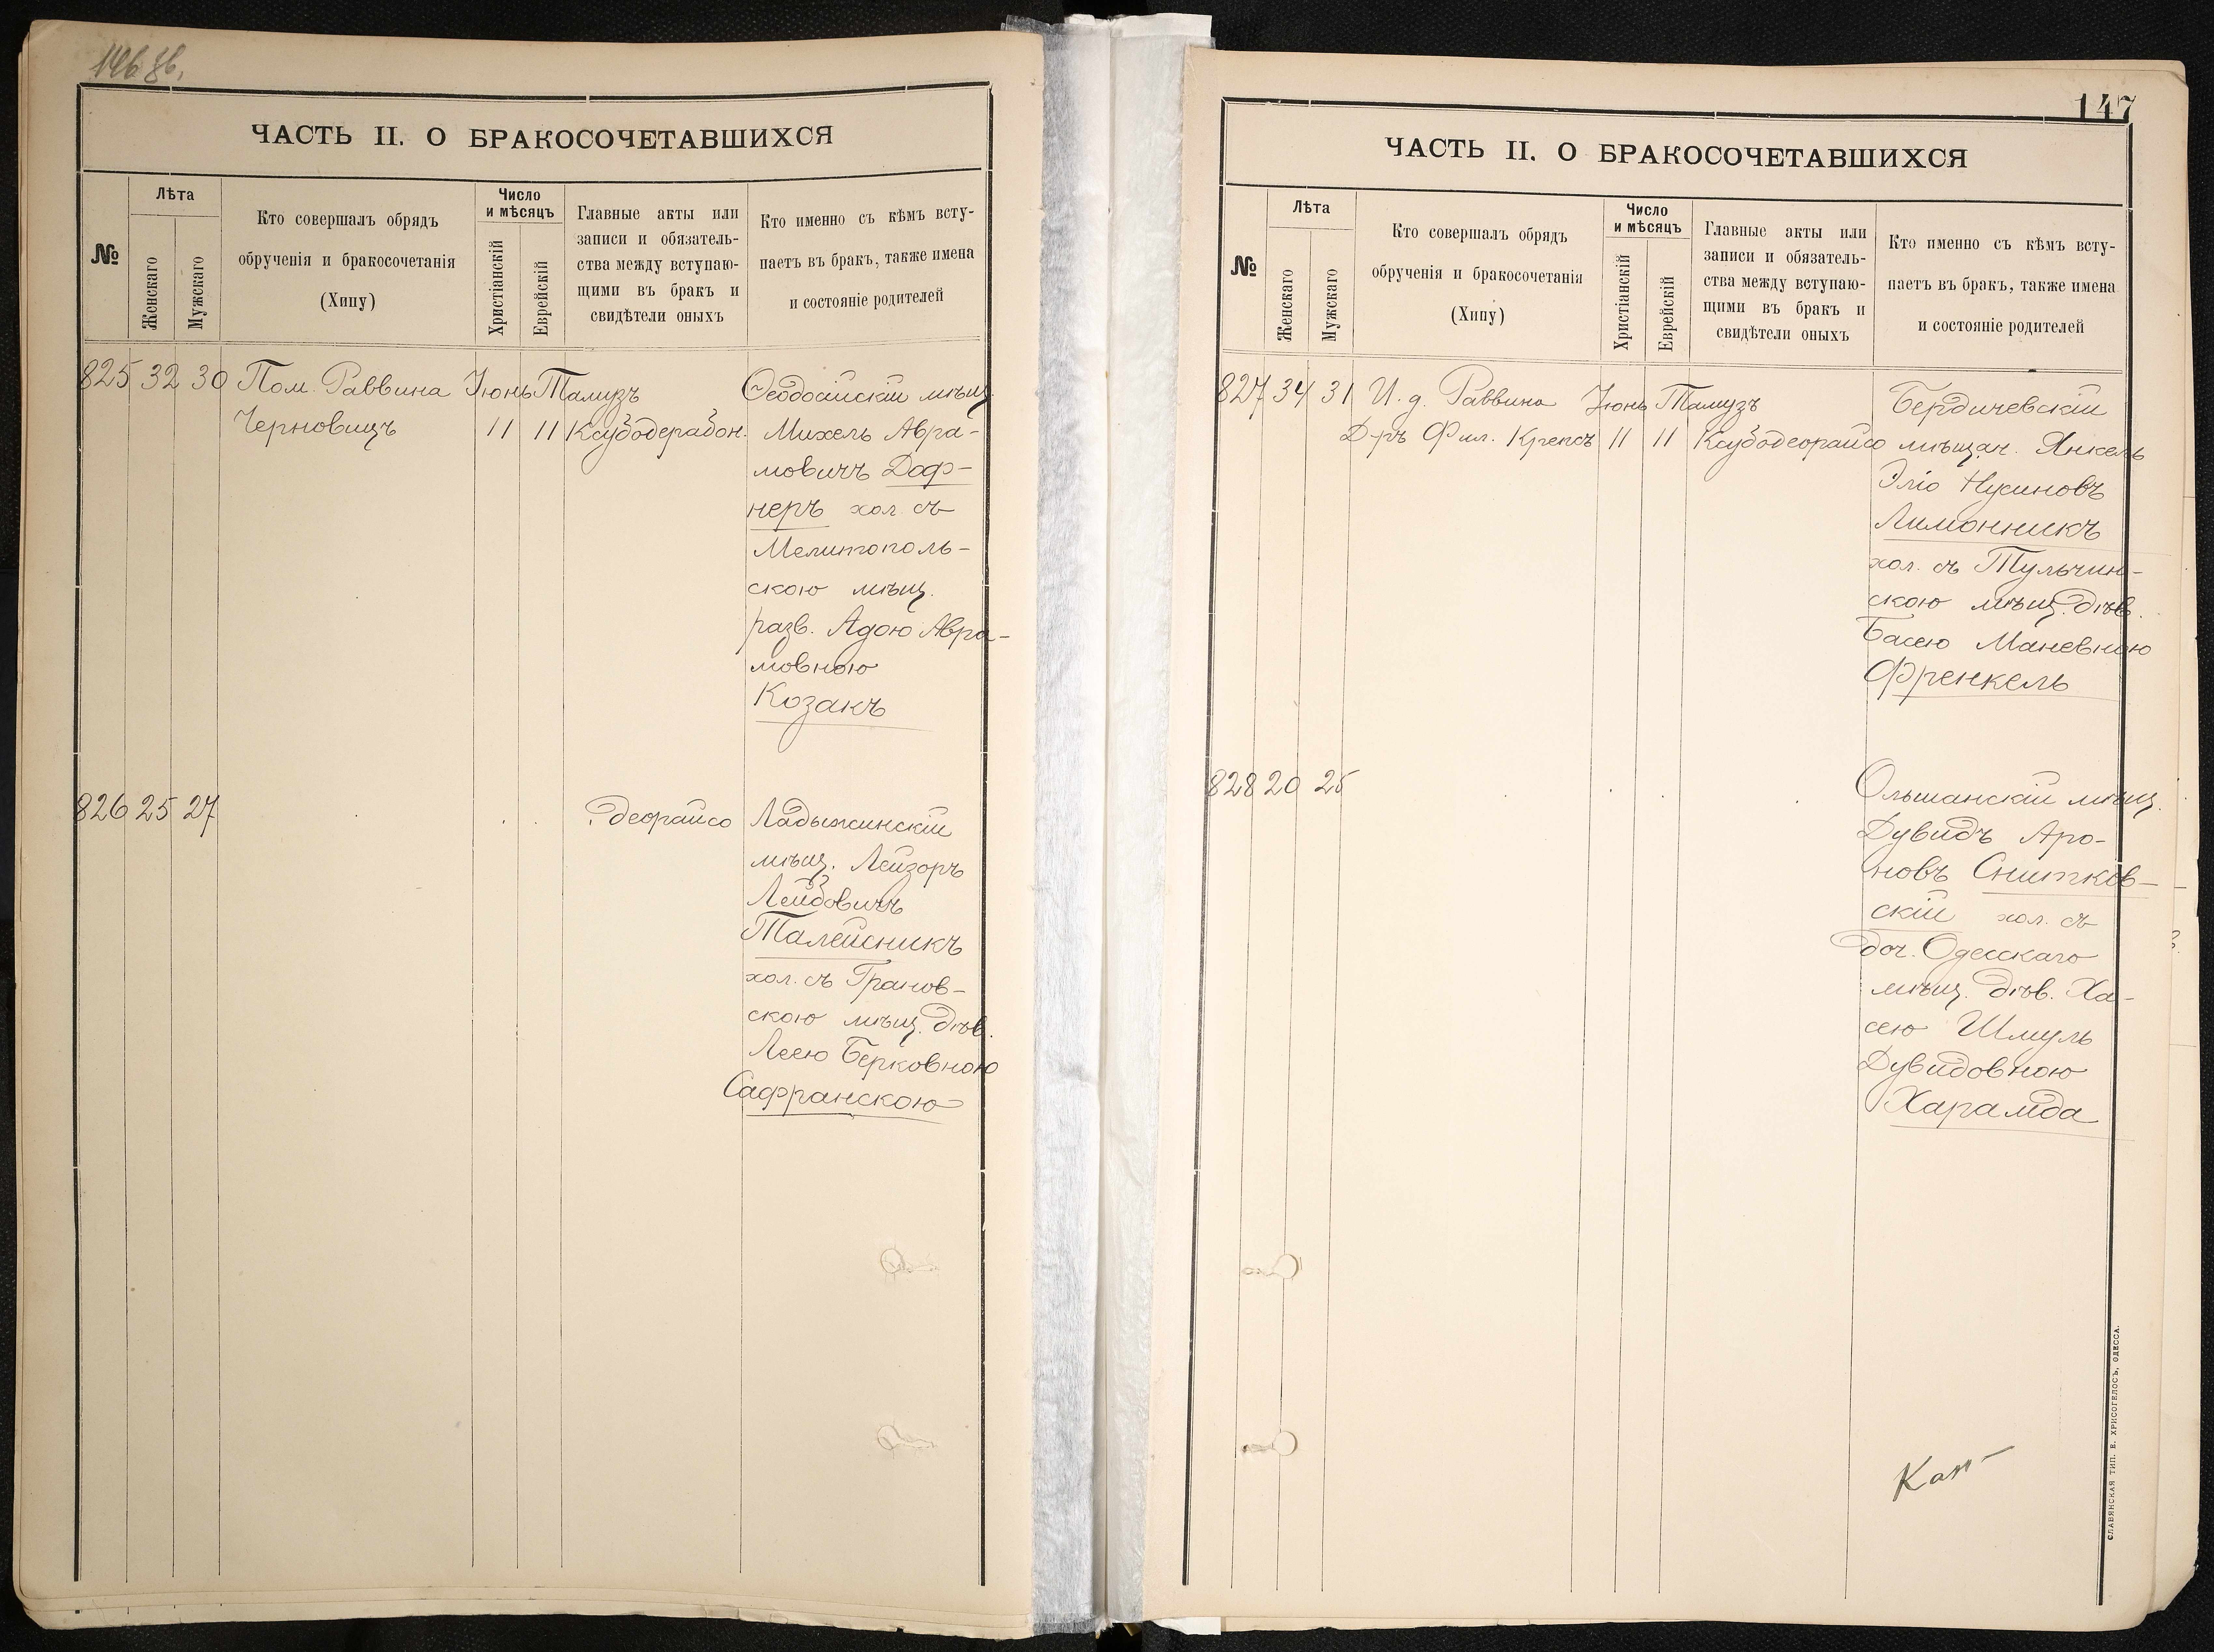 146 об.
ЧАСТЬ II. О БРАКОСОЧЕТАВШИХСЯ
№
Лѣта
Женскаго
Мужскаго
Кто совершалъ обрядъ
обрученія и бракосочетанія
(Хипу)
Число
и мѣсяцъ
Христіанскій
Еврейскій
Главные акты или
записи и обязатель-
ства между вступаю-
щими въ бракъ и
свидѣтели оныхъ
Кто именно съ кѣмъ всту-
паетъ въ бракъ, также имена
и состояніе родителей
825 32 30 Пом. Раввина Іюнь Тамузъ Ѳеодосійскій мѣщ.
Черновицъ 11 11 Ксубодерабон. Михель Авра-
мовичъ Даф-
неръ хол. съ
Мелитополь-
скою мѣщ.
разв. Адою Авра-
мовною
Козакъ
826 25 27 деорайсо Ладыжинскій
мѣщ. Лейзоръ
Лейбовичъ
Талейсникъ
хол. съ Гранов-
скою мѣщ. дѣв.
Леею Берковною
Сафранскою
147
ЧАСТЬ II. О БРАКОСОЧЕТАВШИХСЯ
№
Лѣта
Женскаго
Мужскаго
Кто совершалъ обрядъ
обрученія и бракосочетанія
(Хипу)
Число
и мѣсяцъ
Христіанскій
Еврейскій
Главные акты или
записи и обязатель-
ства между вступаю-
щими въ бракъ и
свидѣтели оныхъ
Кто именно съ кѣмъ всту-
паетъ въ бракъ, также имена
и состояніе родителей
827 34 31 И. д. Раввина Іюнь Тамузъ Бердичевскій
Д-ръ Фил. Крепсъ 11 11 Ксубодеорайсо мѣщан. Янкель
Эліо Нусиновъ
Лимонникъ
хол. съ Тульчин-
скою мѣщ. дѣв.
Басею Маневною
Френкель
828 20 25 Ольшанскій мѣщ.
Дувидъ Аро-
новъ Снитков-
скій хол. съ
доч. Одесскаго
мѣщ. дѣв. Ха-
сею Шмуль
Дувидовною
Харамда
СЛАВЯНСКАЯ ТИП. Е. ХРИСОГЕЛОСЪ, ОДЕССА.